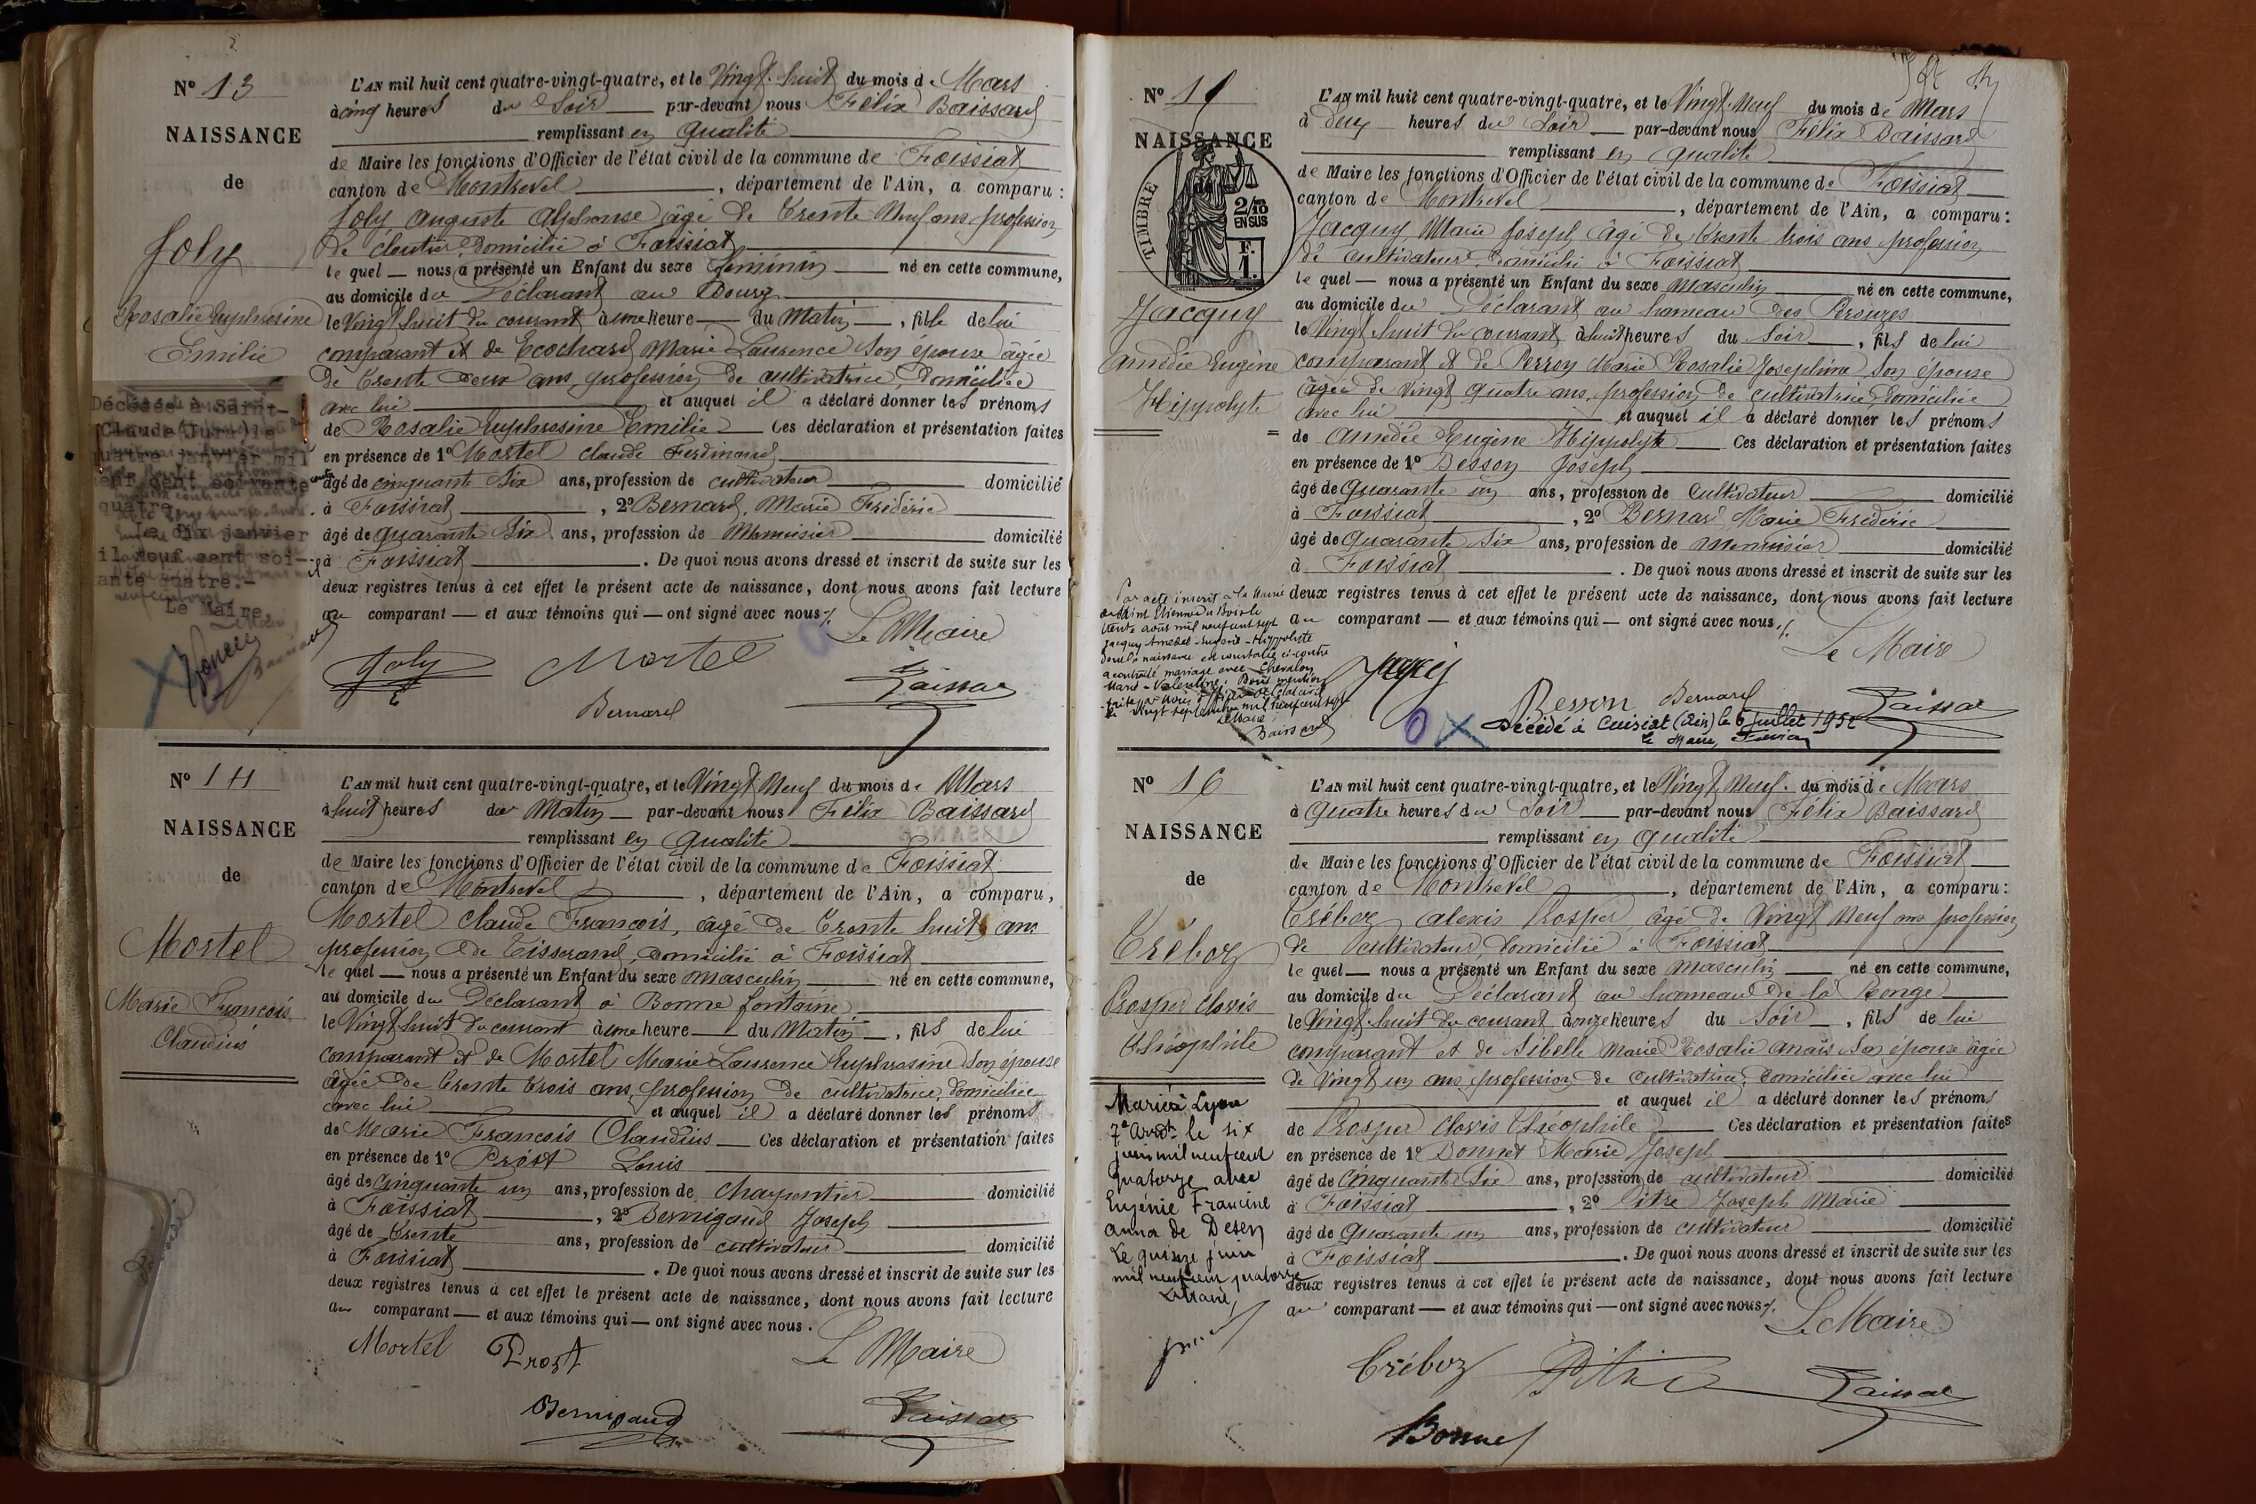 Nº 13
NAISSANCE
de
Joly
Rosalie Euphrosine
Emilie
Décédée à Saint-
Claude (Jura) le
quatre janvier mil
neuf cent soixante
quatre.
Le dix janvier
mil neuf cent soi-
xante quatre.-
Le Maire,
L'AN mil huit cent quatre-vingt-quatre, et le Vingt huit du mois de Mars
à cinq heures du Soir par-devant nous Félix Baissard
remplissant en qualité
de Maire les fonctions d'Officier de l'état civil de la commune de Foissiat
canton de Montrevel, département de l'Ain, a comparu :
Joly auguste alphonse âgé de trente Neuf ans profession
de cloutier domicilié à Foissiat
le quel nous a présenté un Enfant du sexe féminin né en cette commune,
au domicile du Déclarant au Bourg
le Vingt huit du courant à une heure du Matin, fille de lui
comparant et de Ecochard Marie Laurence Son épouse âgée
de trente deux ans, profession de cultivatrice, domiciliée
avec lui et auquel il a déclaré donner les prénoms
de Rosalie Euphrosine Emilie Ces déclaration et présentation faites
en présence de 1º Mortel claude Ferdinand
âgé de cinquante Six ans, profession de cultivateur domicilié
à Foissiat, 2º Bernard, Marie Frédéric
âgé de quarante Six ans, profession de Menuisier domicilié
à Foissiat. De quoi nous avons dressé et inscrit de suite sur les
deux registres tenus à cet effet le présent acte de naissance, dont nous avons fait lecture
au comparant et aux témoins qui ont signé avec nous.
Le Maire
Joly Mortel
Bernard Baissard
Nº 14
NAISSANCE
de
Mortel
Marie François
Claudius
L'AN mil huit cent quatre-vingt-quatre, et le Vingt Neuf du mois de Mars
à huit heures du Matin par-devant nous Félix Baissard
remplissant en qualité
de Maire les fonctions d'Officier de l'état civil de la commune de Foissiat
canton de Montrevel, département de l'Ain, a comparu,
Mortel Claude François, âgé de trente huit ans
profession de Tisserand, domicilié à Foissiat
le quel nous a présenté un Enfant du sexe masculin né en cette commune,
au domicile du Déclarant à Bonne fontaine
le Vingt huit du courant à une heure du Matin, fils de lui
comparant et de Mortel Marie Laurence Euphrosine Son épouse
âgée de trente trois ans, profession de cultivatrice, domiciliée
avec lui et auquel il a déclaré donner les prénoms
de Marie François Claudius Ces déclaration et présentation faites
en présence de 1º Prost Louis
âgé de cinquante un ans, profession de charpentier domicilié
à Foissiat, 2º Bernigaud Joseph
âgé de trente ans, profession de cultivateur domicilié
à Foissiat. De quoi nous avons dressé et inscrit de suite sur les
deux registres tenus à cet effet le présent acte de naissance, dont nous avons fait lecture
au comparant et aux témoins qui ont signé avec nous.
Mortel Prost Le Maire
Bernigaud Baissard
Nº 15
NAISSANCE
de
TIMBRE
2/10
EN SUS
F.
1.
Jacquy
amédée Eugène
Hippolyte
Par acte inscrit à la Mairie
de Saint Etienne du Bois le
trente août mil neuf cent sept
Jacquy Amédée-Eugène-Hippolyte
dont la naissance est constatée ci-contre
a contracté mariage avec Chevalon
Marie-Valentine. Dont mention
le vingt septembre mil neuf cent sept
Le Maire
Baissard
L'AN mil huit cent quatre-vingt-quatre, et le Vingt Neuf du mois de Mars
à deux heures du Soir par-devant nous Félix Baissard
remplissant en qualité
de Maire les fonctions d'Officier de l'état civil de la commune de Foissiat
canton de Montrevel, département de l'Ain, a comparu :
Jacquy Marie Joseph âgé de trente trois ans profession
de cultivateur, domicilié à Foissiat
le quel nous a présenté un Enfant du sexe Masculin né en cette commune,
au domicile du Déclarant au hameau des
le Vingt huit du courant à huit heures du Soir, fils de lui
comparant et de Perron Marie Rosalie Joséphine Son épouse
âgée de vingt quatre ans, profession de cultivatrice, domiciliée
avec lui et auquel il a déclaré donner les prénoms
de amédée Eugène Hippolyte Ces déclaration et présentation faites
en présence de 1º Besson Joseph
âgé de quarante un ans, profession de Cultivateur domicilié
à Foissiat, 2º Bernard Marie Frédéric
âgé de quarante Six ans, profession de Menuisier domicilié
à Foissiat. De quoi nous avons dressé et inscrit de suite sur les
deux registres tenus à cet effet le présent acte de naissance, dont nous avons fait lecture
au comparant et aux témoins qui ont signé avec nous.
Le Maire
Jacquy
Besson Bernard Baissard
Décédé à Cuisiat (Ain) le 6 juillet 1952
Le Maire,
Nº 16
NAISSANCE
de
Tréboz
Prosper Clovis
Théophile
Marié à Lyon
7e Arrdt le six
juin mil neuf cent
quatorze avec
Eugénie Francine
Anna de Desen
Le quinze juin
mil neuf cent quatorze
Le Maire,
L'AN mil huit cent quatre-vingt-quatre, et le Vingt Neuf du mois de Mars
à quatre heures du Soir par-devant nous Félix Baissard
remplissant en qualité
de Maire les fonctions d'Officier de l'état civil de la commune de Foissiat
canton de Montrevel, département de l'Ain, a comparu :
Tréboz alexis Prosper, âgé de Vingt Neuf ans profession
de cultivateur, domicilié à Foissiat
le quel nous a présenté un Enfant du sexe Masculin né en cette commune,
au domicile du Déclarant au hameau de la Ronge
le Vingt huit du courant à onze heures du Soir, fils de lui
comparant et de Sibelle Marie Rosalie anaïs Son épouse âgée
de Vingt un ans, profession de Cultivatrice, domiciliée avec lui
et auquel il a déclaré donner les prénoms
de Prosper Clovis Théophile Ces déclaration et présentation faites
en présence de 1º Bonnet Marie Joseph
âgé de Cinquante Six ans, profession de cultivateur domicilié
à Foissiat, 2º Pitre Joseph Marie
âgé de quarante un ans, profession de cultivateur domicilié
à Foissiat. De quoi nous avons dressé et inscrit de suite sur les
deux registres tenus à cet effet le présent acte de naissance, dont nous avons fait lecture
au comparant et aux témoins qui ont signé avec nous.
Le Maire
Tréboz Pitre Baissard
Bonnet